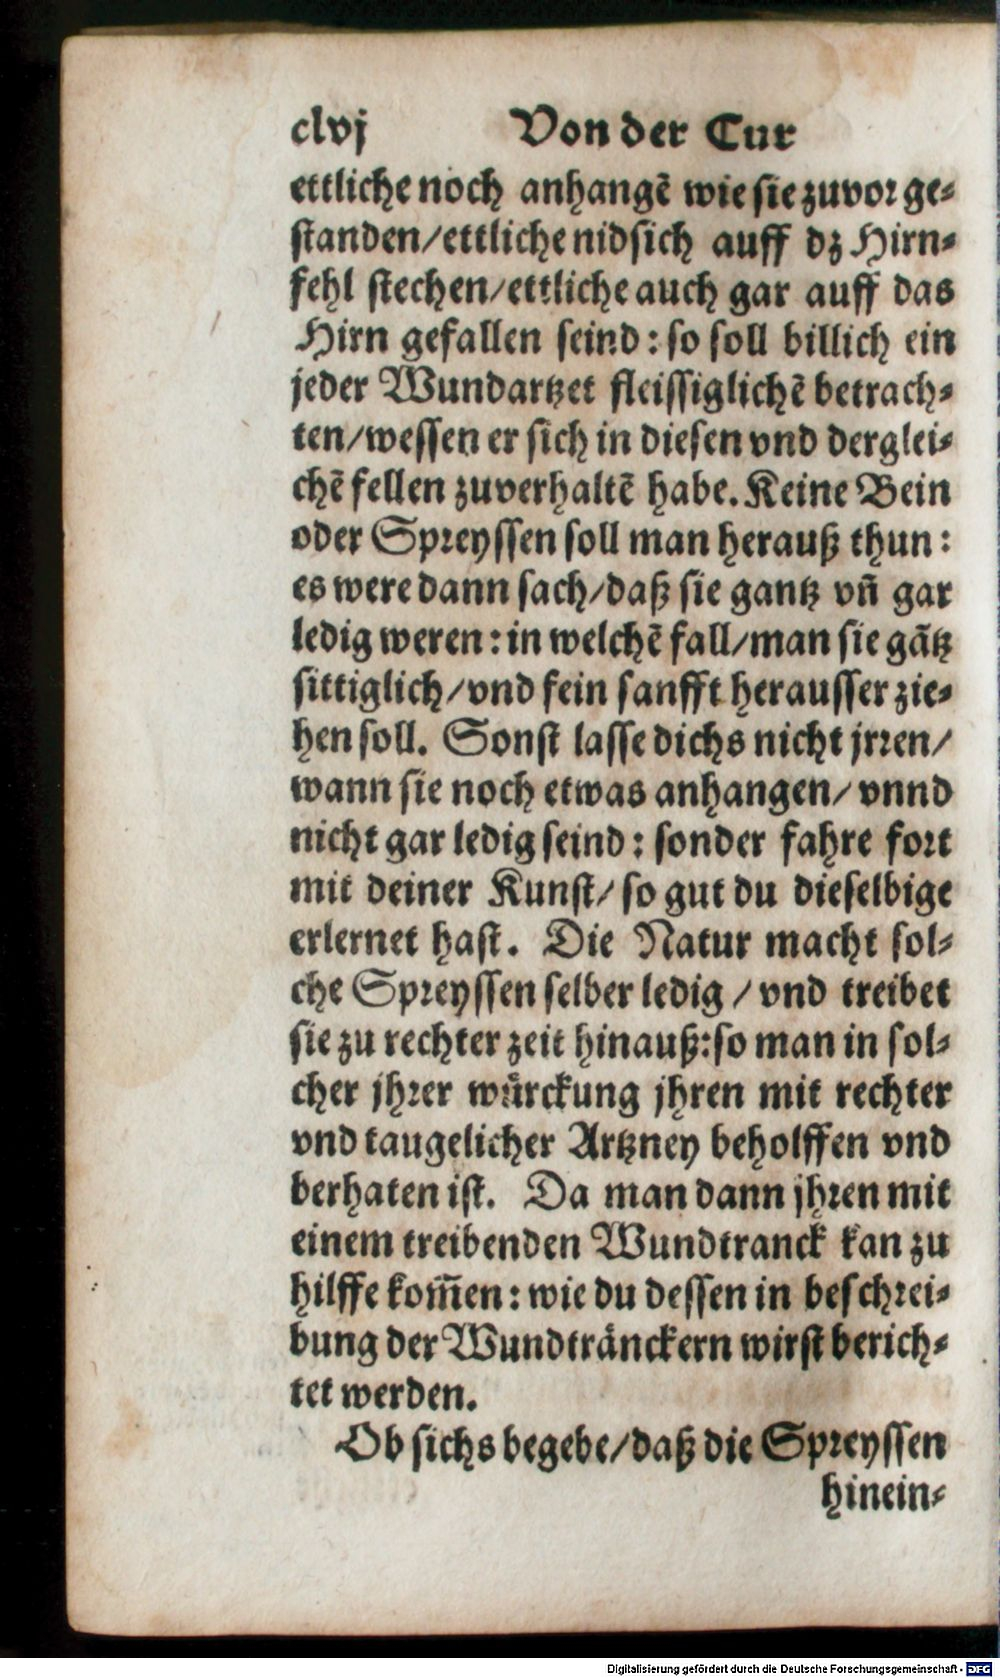 clvj Von der Cur
ettliche noch anhangẽ wie sie zuvor ge-
standen/ettliche nidsich auff dz Hirn-
fehl stechen/ettliche auch gar auff das
Hirn gefallen seind: so soll billich ein
jeder Wundartzet fleissiglichẽ betrach-
ten/wessen er sich in diesen vnd derglei-
chẽ fellen zuverhaltẽ habe. Keine Bein
oder Spreyssen soll man herauß thun:
es were dann sach/daß sie gantz vñ gar
ledig weren: in welchẽ fall/man sie gãtz
sittiglich/vnd fein sanfft herausser zie-
hen soll. Sonst lasse dichs nicht jrren/
wann sie noch etwas anhangen/ vnnd
nicht gar ledig seind: sonder fahre fort
mit deiner Kunst/ so gut du dieselbige
erlernet hast. Die Natur macht sol-
che Spreyssen selber ledig / vnd treibet
sie zu rechter zeit hinauß: so man in sol-
cher jhrer wůrckung jhren mit rechter
vnd taugelicher Artzney beholffen vnd
berhaten ist. Da man dann jhren mit
einem treibenden Wundtranck kan zu
hilffe kom̃en: wie du dessen in beschrei-
bung der Wundtränckern wirst berich-
tet werden.
Ob sichs begebe/daß die Spreyssen
hinein-
Digitalisierung gefördert durch die Deutsche Forschungsgemeinschaft - DFG